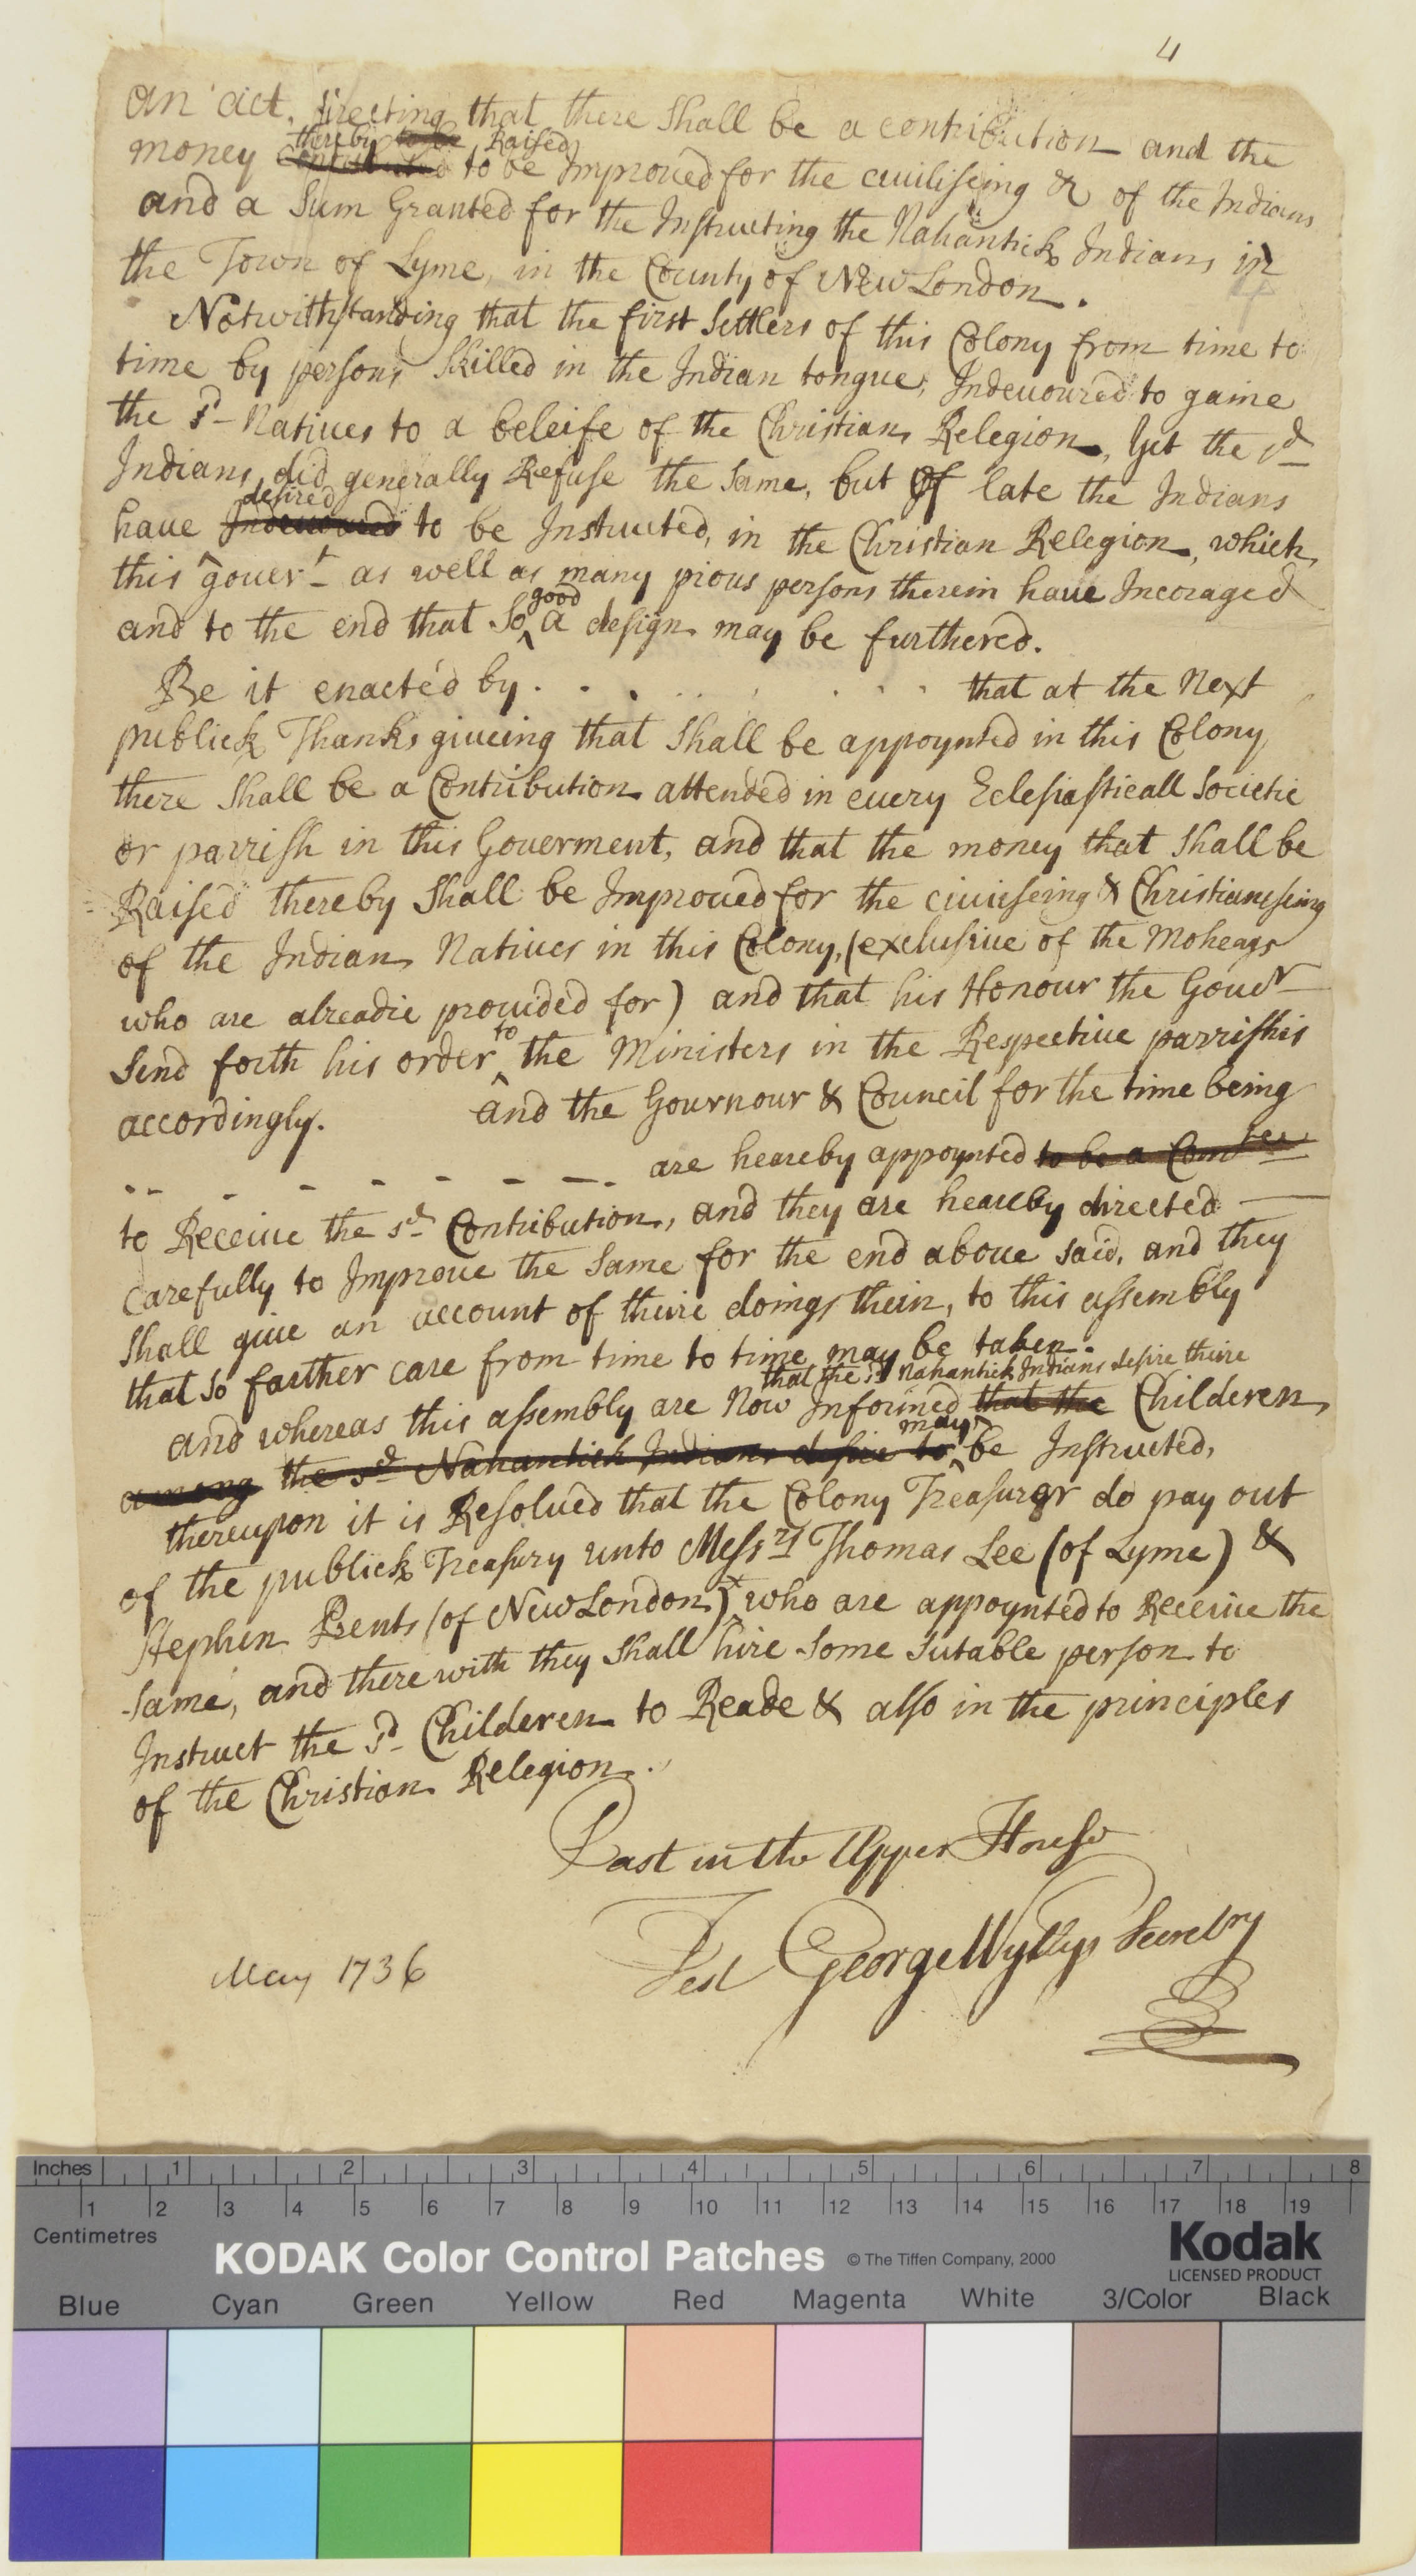 4
an act, directing that there Shall be a contribution and the
thereby Raised
money to be Improued for the ciuiliseing & of the Indians
and a Sum Granted for the Instructing the Nahantick Indians in
4
the Town of Lyme, in the County of New London.
Notwithstanding that the first Settlers of this Colony from time to
time by persons Skilled in the Indian tongue, Indeuoured to gaine
the sd Natiues to a beleife of the Christian Relegion, Yet the sd
Indians did generally Refuse the Same, but of late the Indians
desired
haue Indeuoured to be Instructed, in the Christian Relegion, which
this ^ gouert as well as many pious persons therein haue Incoraged
good
and to the end that So ^ a design may be furthered.
Be it enacted by . . . . . . . . that at the Next
publick Thanksgiueing that Shall be appoynted in this Colony
there Shall be a Contribution attended in euery Eclesiasticall Societie
or parrish in this Gouerment, and that the money that Shall be
Raised thereby Shall be Improued for the ciuiiseing & Christianiseing
of the Indian Natiues in this Colony, (exclusiue of the Moheags
who are alreadie prouided for) and that his Honour the Gouer
to
Send forth his order ^ the Ministers in the Respectiue parrishis
accordingly. and the Gournour & Council for the time being
.. - - - - - - - . are heareby appoynted to be a Comtee
to Receiue the sd Contribution, and they are heareby directed
carefully to Improue the Same for the end aboue said, and they
Shall giue an account of theire doings thein, to this assembly
that So farther care from time to time may be taken.
that the sd Nahantick Indians desire theire
and whereas this assembly are Now Informed that the ^ Childeren
may
among the sd Nahantick Indians desire to ^ be Instructed,
thereupon it is Resolued that the Colony Treasurer do pay out
of the publick Treasury unto Messrs Thomas Lee (of Lyme) &
Stephen Prents (of New London) ^ who are appoynted to Receiue the
Same, and there with they Shall hire Some Sutable person to
Instruct the sd Childeren to Reade & also in the principles
of the Christian Relegion.
Past in the Upper House
Test George Wyllys Secretry
May 1736
Inches 1 2 3 4 5 6 7 8
1 2 3 4 5 6 7 8 9 10 11 12 13 14 15 16 17 18 19
Centimetres
KODAK Color Control Patches © The Tiffen Company, 2000
Kodak
LICENSED PRODUCT
Blue Cyan Green Yellow Red Magenta White 3/Color Black